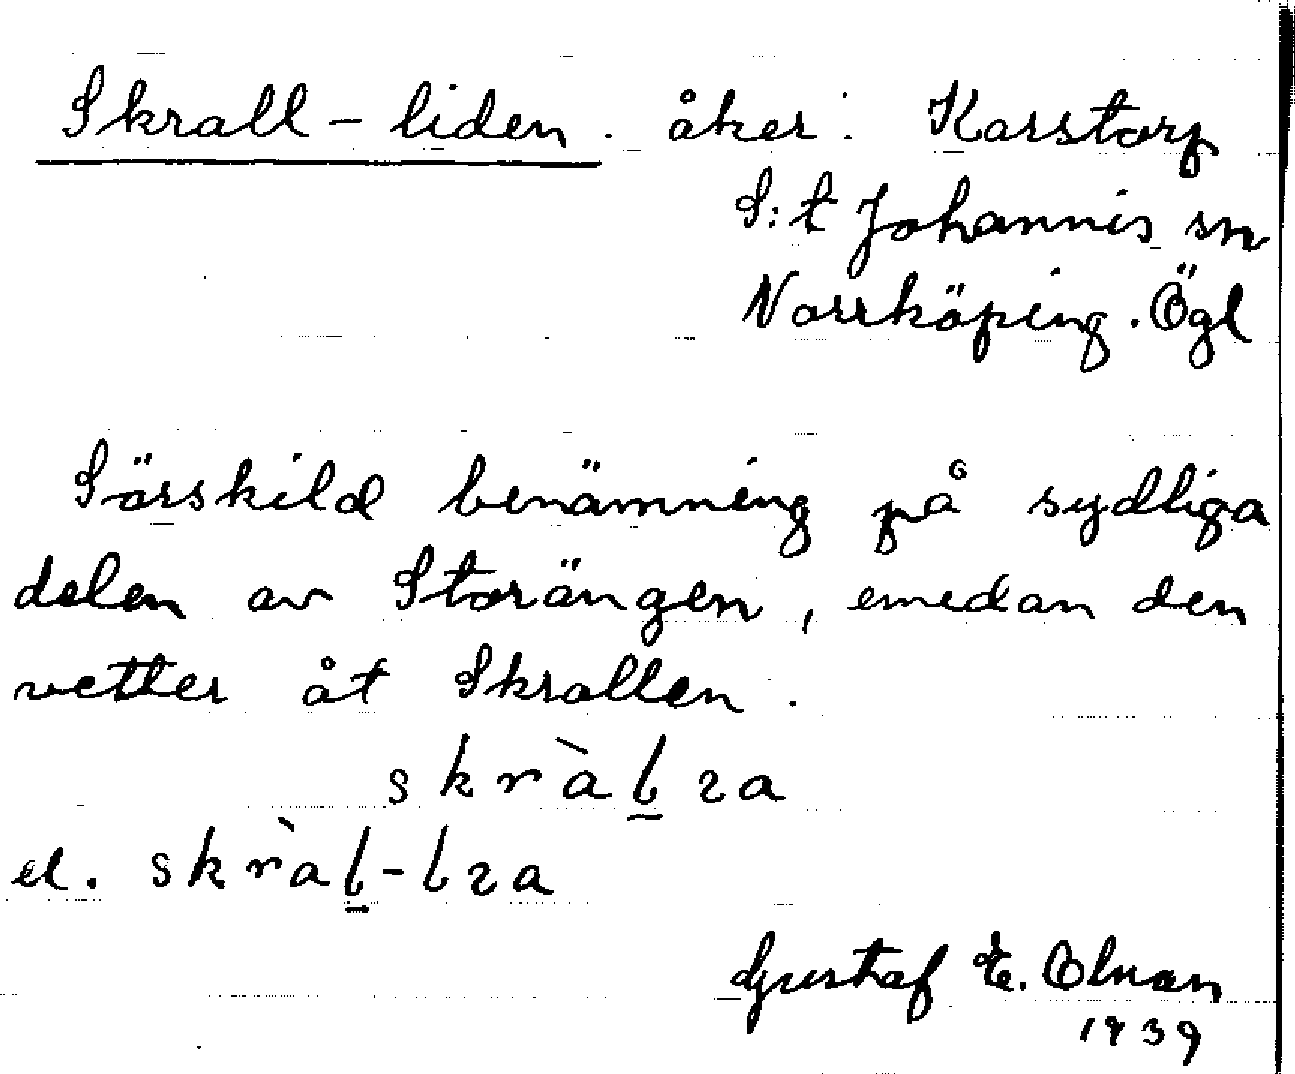 Skrall-liden. åker. Karstorp
S:t Johannis sn
Norrköping. Ögl
Särskild benämning på sydliga
delen av Storängen, emedan den
vetter åt Skrallen.
skràl̲ ɿa
el. skràl̲-lɿa
Gustaf E. Olman
1939